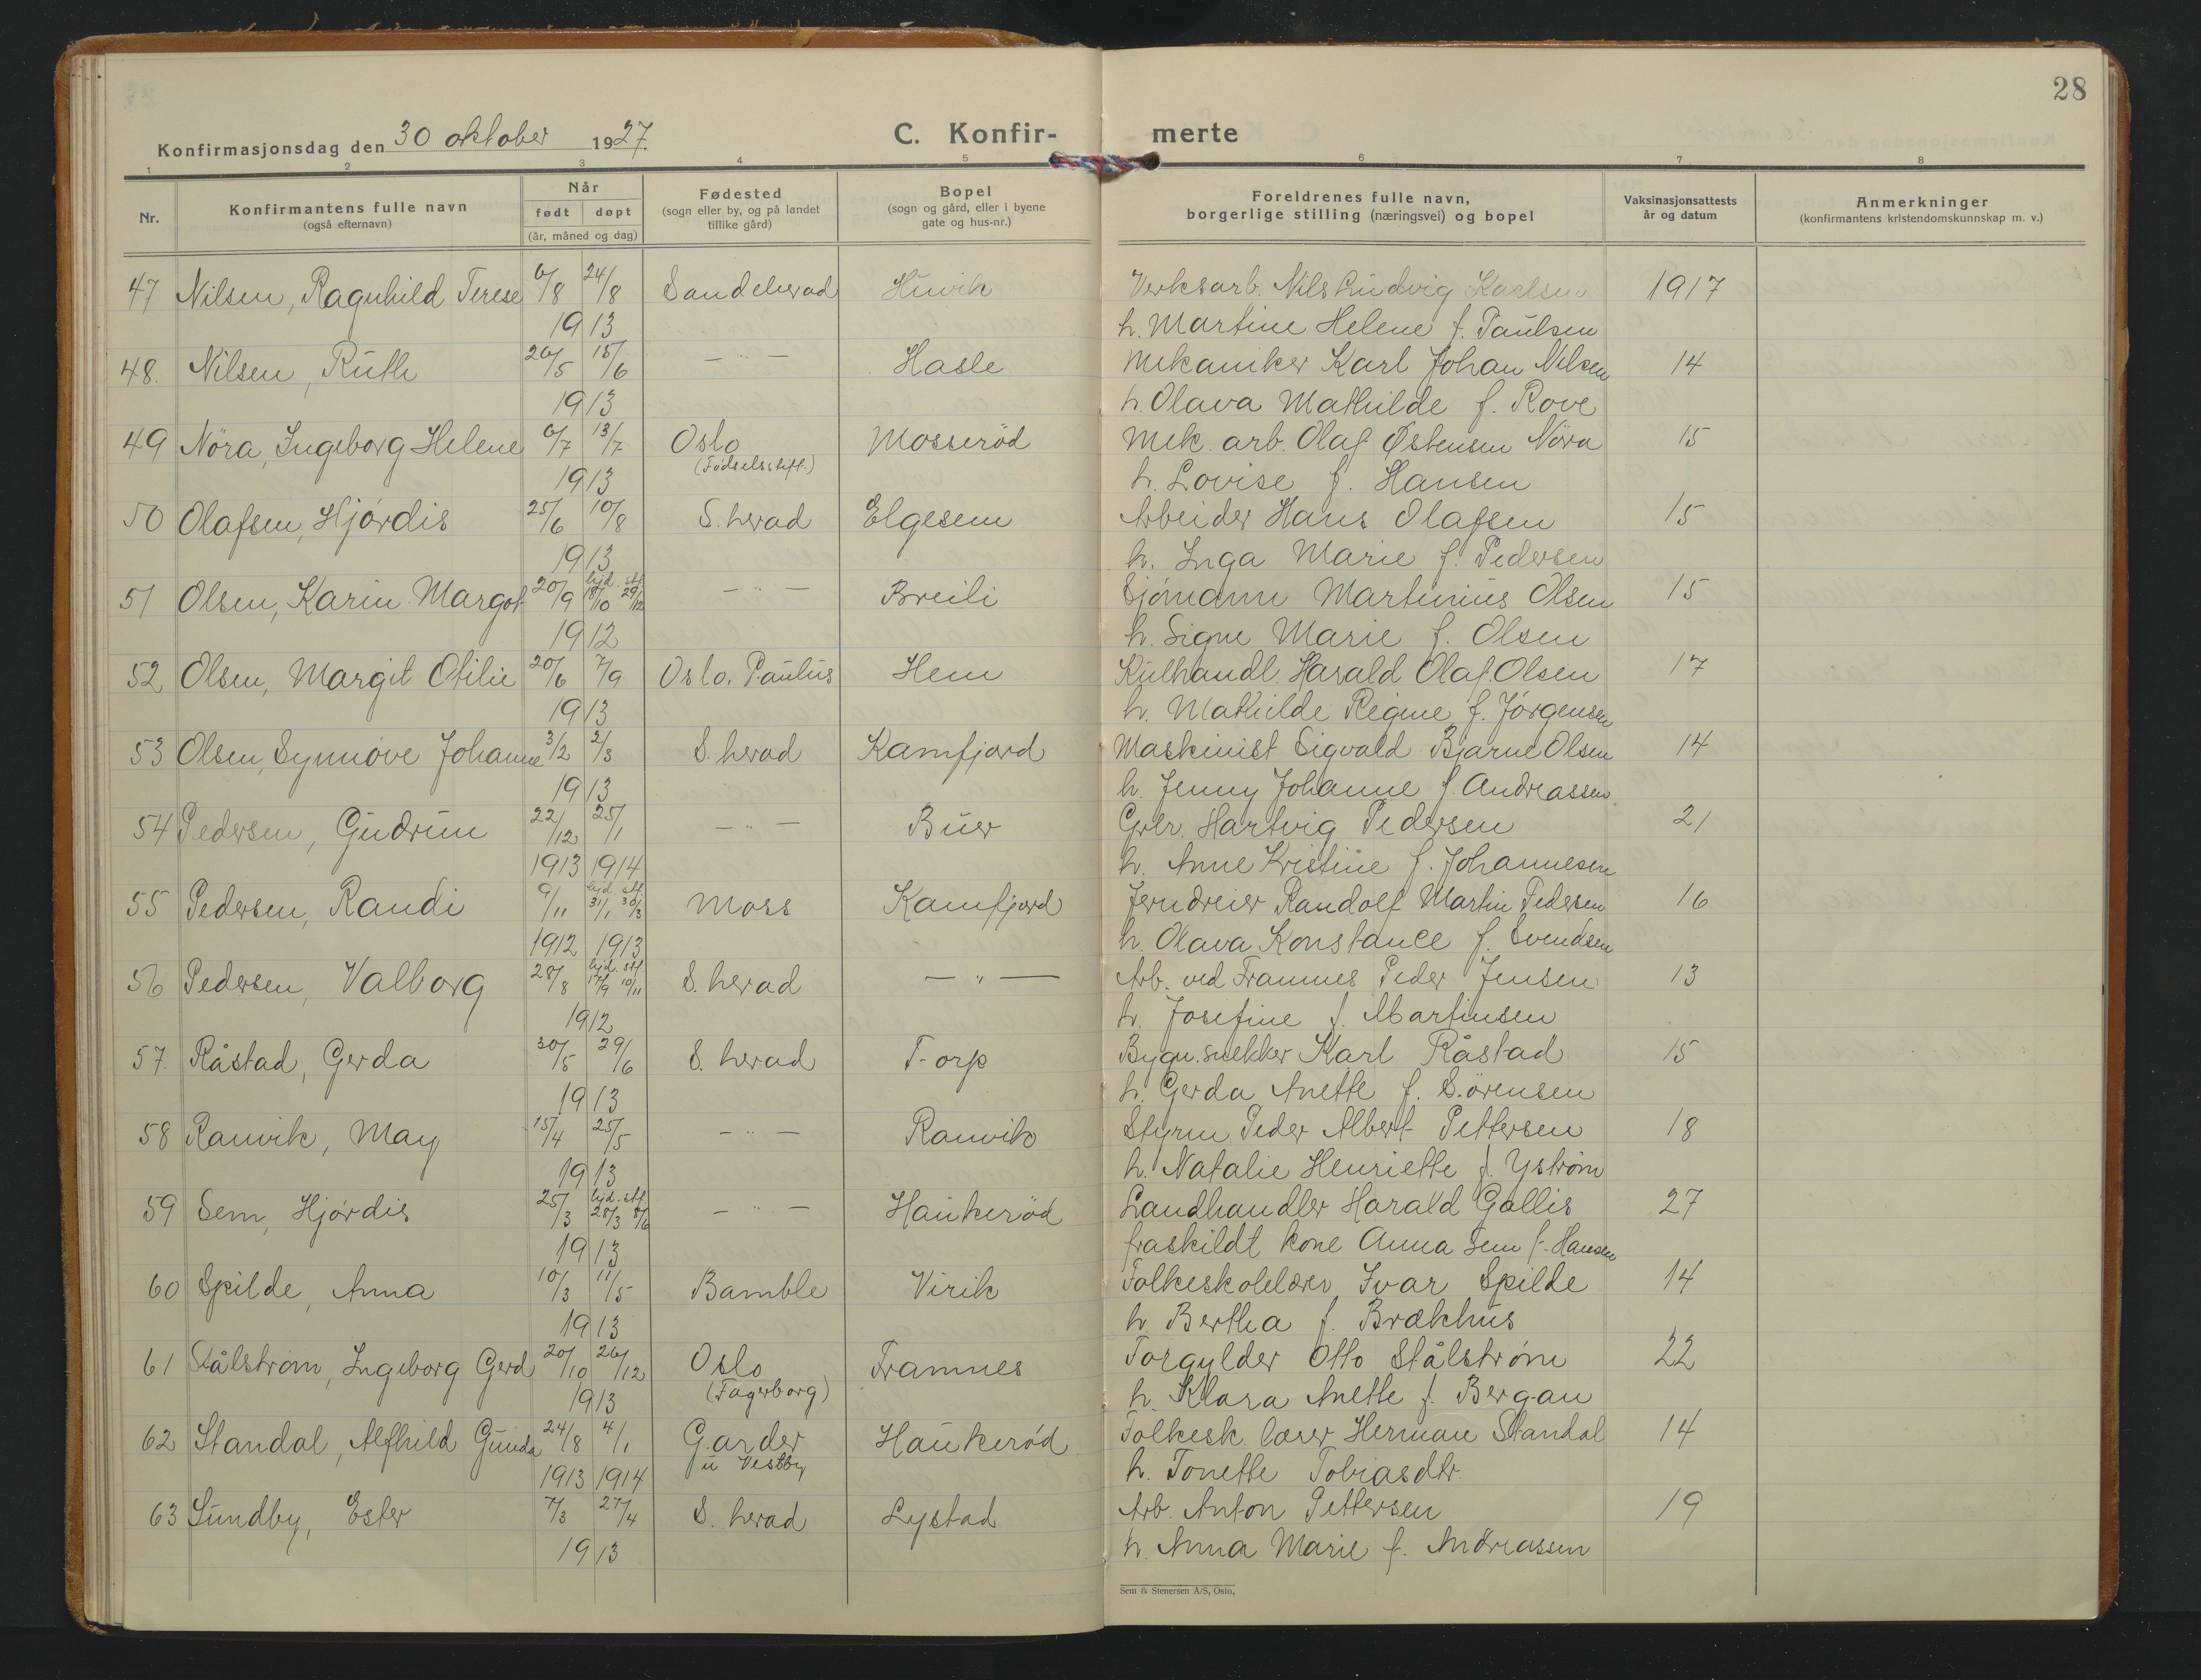 28
Konfirmasjonsdag den 30 oktober 1927.
C. Konfir- merte
1 2 3 4 5 6 7 8
Nr.
Konfirmantens fulle navn
(også efternavn)
Når
født døpt
(år, måned og dag)
Fødested
(sogn eller by, og på landet
tillike gård)
Bopel
(sogn og gård, eller i byene
gate og hus-nr.)
Foreldrenes fulle navn,
borgerlige stilling (næringsvei) og bopel
Vaksinasjonsattests
år og datum
Anmerkninger
(konfirmantens kristendomskunnskap m. v.)
47 Nilsen, Ragnhild Terese 6/8 24/8 Sandeherad Huvik Verksarb. Nils Ludvig Karlsen 1917
1913 h. Martine Helene f. Paulsen
48. Nilsen, Ruth 26/5 15/6 — " — Hasle Mekaniker Karl Johan Nilsen 14
1913 h. Olava Mathilde f. Rove
49 Nöra, Ingeborg Helene 6/7 13/7 Oslo Mosserød Mek. arb. Olaf Østensen Nöra 15
(Fødselsstift.)
1913 h. Lovise f. Hansen
50 Olafsen, Hjördis 25/6 10/8 S. herad Elgesem Arbeider Hans Olafsen 15
1913 h. Inga Marie f. Pedersen
51 Olsen, Karin Margot 20/9 hjd. 18/10 stf. 29/12 — " — Breili Sjömann Martinius Olsen 15
1912 h. Signe Marie f. Olsen
52 Olsen, Margit Otilie 20/6 7/9 Oslo. Paulus Hem Kulhandl. Harald Olaf. Olsen 17
1913 h. Mathilde Regine f. Jörgensen
53 Olsen, Synnöve Johanne 3/2 2/3 S. herad Kamfjord Maskinist Sigvald Bjarne Olsen 14
1913 h. Jenny Johanne f. Andreassen
54 Pedersen, Gudrun 22/12 25/1 — " — Buer Grbr. Hartvig Pedersen 21
1913 1914 h. Anne Kristine f. Johannesen
55 Pedersen, Randi 9/11 hjd. 31/1 stf. 30/3 Moss Kamfjord Jerndreier Randolf Martin Pedersen 16
1912 1913 h. Olava Konstance f. Svendsen
56 Pedersen, Valborg 28/8 hjd. 17/9 stf. 10/11 S. herad — " — Arb. ved Framnes Peder Jensen 13
1912 h. Josefine f. Martinsen
57. Råstad, Gerda 30/5 29/6 S. herad Torp Bygn. snekker Karl Råstad 15
1913 h. Gerda Anette f. Sörensen
58 Ranvik, May 15/4 25/5 — " — Ranvik Styrm. Peder Albert Pettersen 18
1913 h. Natalie Henriette f. Yström
59 Sem, Hjördis 25/3 hjd. 28/3 stf. 8/6 — " — Haukeröd Landhandler Harald Gallis 27
1913 fraskildt kone Anna Sem f. Hansen
60 Spilde, Anna 10/3 11/5 Bamble Virik Folkeskolelærer Ivar Spilde 14
1913 h. Bertha f. Brækhus
61 Stålström, Ingeborg Gerd 20/10 26/12 Oslo Framnes Forgylder Otto Stålström 22
(Fagerborg)
1913 h. Klara Anette f. Bergan
62 Standal, Alfhild Gunda 24/8 4/1 Garder Haukeröd Folkesk. lærer Herman Standal 14
i Vestby
1913 1914 h. Tonette Tobiasdtr.
63 Sundby, Ester 7/3 27/4 S. herad Lystad Arb. Anton Pettersen 19
1913 h. Anna Marie f. Andreassen
Sem & Stenersen A/S, Oslo.